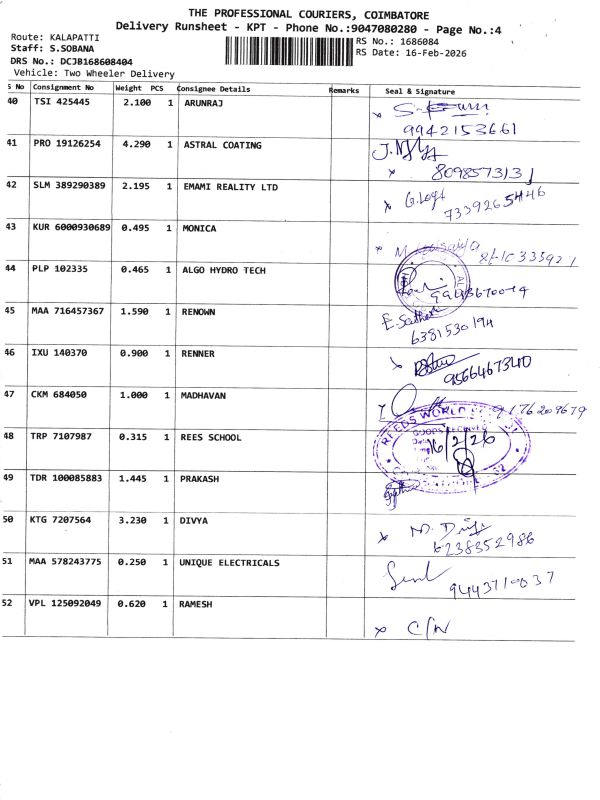 THE PROFESSIONAL COURIERS, COIMBATORE
Delivery Runsheet - KPT - Phone No.:9047080280 - Page No.:4
Route: KALAPATTI
RS No.: 1686084
Staff: S.SOBANA
RS Date: 16-Feb-2026
DRS No.: DCJB168608404
Vehicle: Two Wheeler Delivery
S No Consignment No Weight PCS Consignee Details Remarks Seal & Signature
40 TSI 425445 2.100 1 ARUNRAJ
x
9942153661
41 PRO 19126254 4.290 1 ASTRAL COATING
x 8098573131
42 SLM 389290389 2.195 1 EMAMI REALITY LTD
x 7339265446
43 KUR 6000930689 0.495 1 MONICA
x
44 PLP 102335 0.465 1 ALGO HYDRO TECH
45 MAA 716457367 1.590 1 RENOWN
6381530194
46 IXU 140370 0.900 1 RENNER
x 9566467340
47 CKM 684050 1.000 1 MADHAVAN
9176209679
48 TRP 7107987 0.315 1 REES SCHOOL
REEDS WORLD
GOODS RECEIVED
16/2/26
49 TDR 100085883 1.445 1 PRAKASH
50 KTG 7207564 3.230 1 DIVYA
x
6238352986
51 MAA 578243775 0.250 1 UNIQUE ELECTRICALS
9443710037
52 VPL 125092049 0.620 1 RAMESH
x C/N